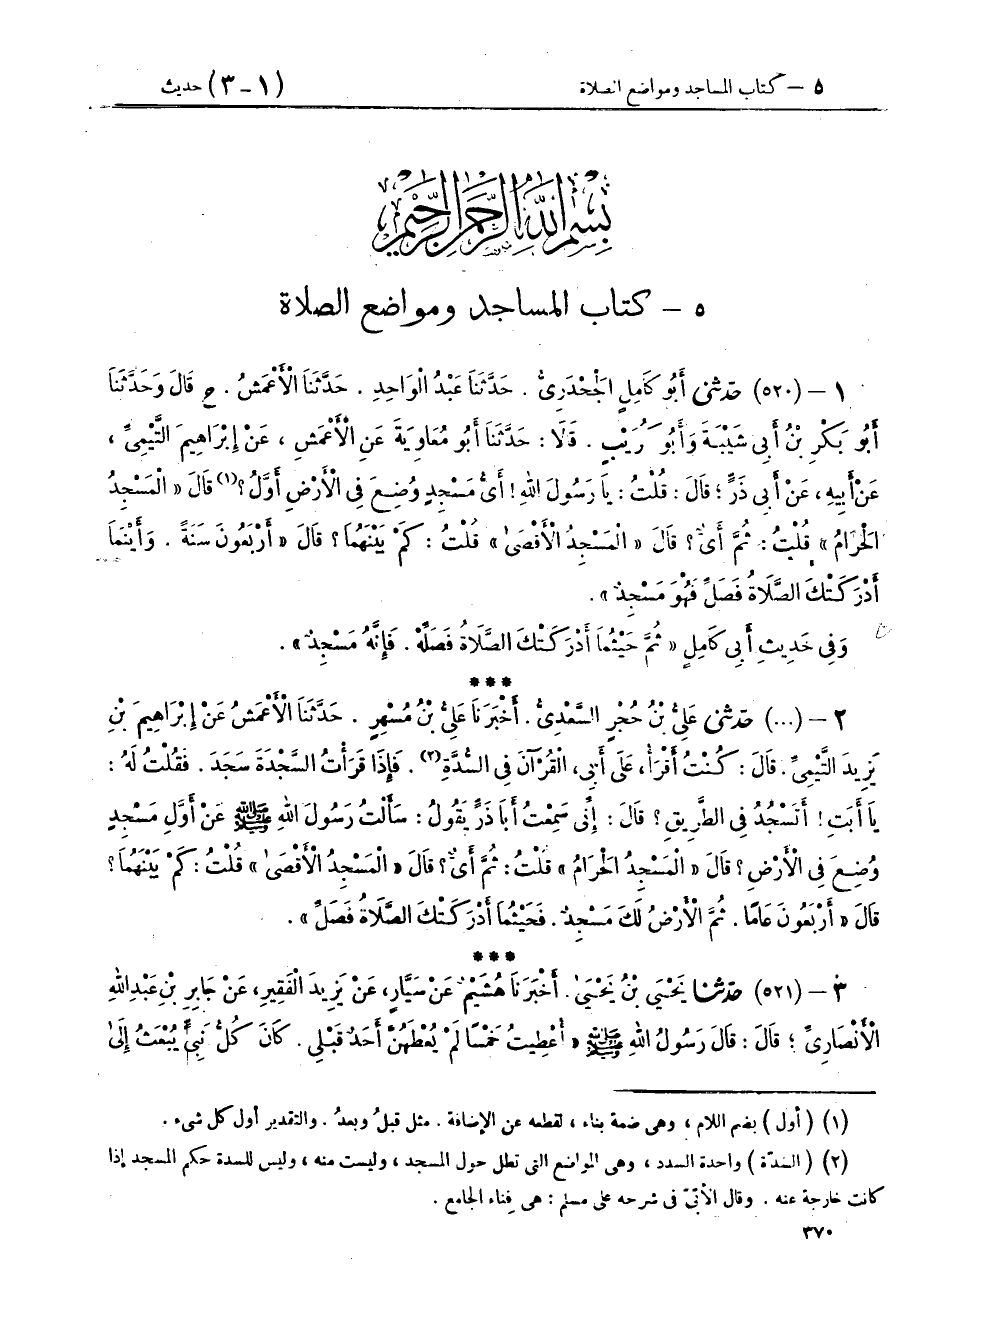 ٥ – كتاب المساجد ومواضع الصلاة
(١ - ٣) حديث
بِسْمِ اللهِ الرَّحْمَنِ الرَّحِيمِ
٥ – كتاب المساجد ومواضع الصلاة
١ – (٥٢٠) حَدَّثَنِي أَبُو كَامِلٍ الْجَحْدَرِيُّ . حَدَّثَنَا عَبْدُ الْوَاحِدِ . حَدَّثَنَا الْأَعْمَشُ . ح قَالَ وَحَدَّثَنَا
أَبُو بَكْرِ بْنُ أَبِي شَيْبَةَ وَأَبُو كُرَيْبٍ . قَالَا : حَدَّثَنَا أَبُو مُعَاوِيَةَ عَنِ الْأَعْمَشِ ، عَنْ إِبْرَاهِيمَ التَّيْمِيِّ ،
عَنْ أَبِيهِ ، عَنْ أَبِي ذَرٍّ ؛ قَالَ : قُلْتُ : يَا رَسُولَ اللهِ ! أَيُّ مَسْجِدٍ وُضِعَ فِي الْأَرْضِ أَوَّلُ ؟(١) قَالَ « الْمَسْجِدُ
الْحَرَامُ » قُلْتُ : ثُمَّ أَيٌّ ؟ قَالَ « الْمَسْجِدُ الْأَقْصَىٰ » قُلْتُ : كَمْ بَيْنَهُمَا ؟ قَالَ « أَرْبَعُونَ سَنَةً . وَأَيْنَمَا
أَدْرَكَتْكَ الصَّلَاةُ فَصَلِّ فَهُوَ مَسْجِدٌ » .
وَفِي حَدِيثِ أَبِي كَامِلٍ « ثُمَّ حَيْثُمَا أَدْرَكَتْكَ الصَّلَاةُ فَصَلِّهْ . فَإِنَّهُ مَسْجِدٌ » .
***
٢ – (...) حَدَّثَنِي عَلِيُّ بْنُ حُجْرٍ السَّعْدِيُّ . أَخْبَرَنَا عَلِيُّ بْنُ مُسْهِرٍ . حَدَّثَنَا الْأَعْمَشُ عَنْ إِبْرَاهِيمَ بْنِ
يَزِيدَ التَّيْمِيِّ . قَالَ : كُنْتُ أَقْرَأُ ، عَلَى أَبِي ، الْقُرْآنَ فِي السُّدَّةِ(٢) . فَإِذَا قَرَأْتُ السَّجْدَةَ سَجَدَ . فَقُلْتُ لَهُ :
يَا أَبَتِ ! أَتَسْجُدُ فِي الطَّرِيقِ ؟ قَالَ : إِنِّي سَمِعْتُ أَبَا ذَرٍّ يَقُولُ : سَأَلْتُ رَسُولَ اللهِ ﷺ عَنْ أَوَّلِ مَسْجِدٍ
وُضِعَ فِي الْأَرْضِ ؟ قَالَ « الْمَسْجِدُ الْحَرَامُ » قُلْتُ : ثُمَّ أَيٌّ ؟ قَالَ « الْمَسْجِدُ الْأَقْصَىٰ » قُلْتُ : كَمْ بَيْنَهُمَا ؟
قَالَ « أَرْبَعُونَ عَامًا . ثُمَّ الْأَرْضُ لَكَ مَسْجِدٌ . فَحَيْثُمَا أَدْرَكَتْكَ الصَّلَاةُ فَصَلِّ » .
***
٣ – (٥٢١) حَدَّثَنَا يَحْيَى بْنُ يَحْيَىٰ . أَخْبَرَنَا هُشَيْمٌ عَنْ سَيَّارٍ ، عَنْ يَزِيدَ الْفَقِيرِ ، عَنْ جَابِرِ بْنِ عَبْدِ اللهِ
الْأَنْصَارِيِّ ؛ قَالَ : قَالَ رَسُولُ اللهِ ﷺ « أُعْطِيتُ خَمْسًا لَمْ يُعْطَهُنَّ أَحَدٌ قَبْلِي . كَانَ كُلُّ نَبِيٍّ يُبْعَثُ إِلَىٰ
(١) ( أول ) بضم اللام ، وهى ضمة بناء ، لقطعه عن الإضافة . مثل قبلُ وبعدُ . والتقدير أول كل شىء .
(٢) ( السّدّة ) واحدة السدد ، وهى المواضع التى تطل حول المسجد ، وليست منه ، وليس للسدة حكم المسجد إذا
كانت خارجة عنه . وقال الأبّىّ فى شرحه على مسلم : هى فِناء الجامع .
٣٧٠